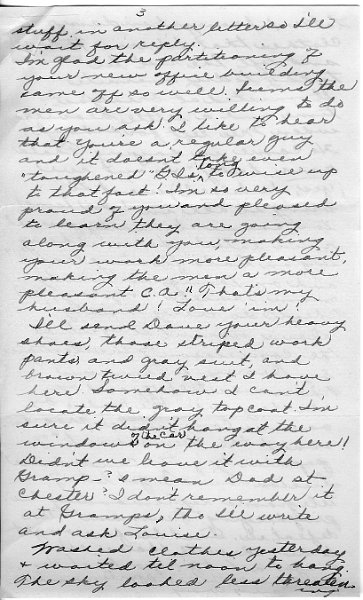 3
stuff in another letter so I'll
wait for reply.
I'm glad the partitioning of
your new office building
came off so well. Seems the
men are very willing to do
as you ask. I like to hear
that you're a regular guy
and it doesn't take even
"toughened" G.I.s long to wise up
to that fact! I'm so very
proud of you and pleased
to learn they are going
along with you, making
your work more pleasant,
making the men a more
pleasant C.A." That's my
husband! Love 'im!
I'll send Dave your heavy
shoes, those striped work
pants and gray suit, and
brown tweed vest I have
here. Somehow I can't
locate the gray topcoat. I'm
sure it didn't hang at the
windows of the car on the way here!!
Didn't we leave it with
Gramp-? I mean Dad at
Chester? I don't remember it
at Gramps, tho I'll write
and ask Louise.
Washed clothes yesterday
& waited til noon to hang.
The sky looked less threatening